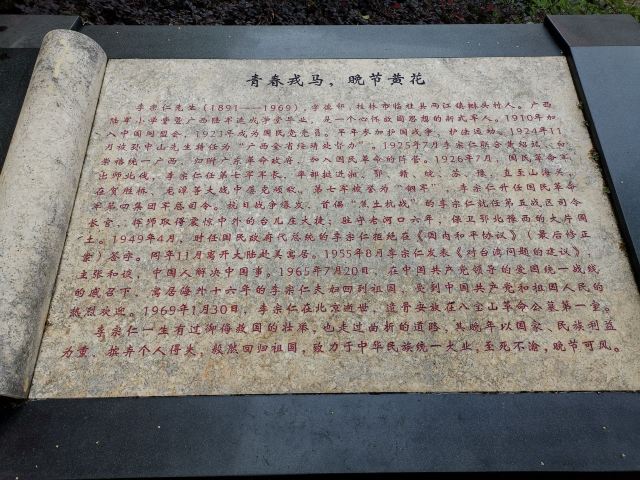 青春戎马，晚节黄花
李宗仁先生（1891——1969），字德邻，桂林市临桂县两江镇㮟头村人。广西
陆军小学堂暨广西陆军速成学堂毕业，是一个心怀救国思想的新式军人。1910年加
入中国同盟会，1923年成为国民党党员。早年参加护国战争、护法运动。1924年11
月被孙中山先生特任为“广西全省绥靖处督办”。1925年7月李宗仁联合黄绍竑、白
崇禧统一广西，归附广东革命政府，加入国民革命的阵营。1926年7月，国民革命军
出师北伐，李宗仁任第七军军长，率部挺进湘、鄂、赣、皖、苏、豫，直至山海关，
在贺胜桥、
等大战中屡克顽敌，第七军被誉为“钢军”。李宗仁升任国民革命
军第四集团军总司令。抗日战争爆发，首倡“焦土抗战”的李宗仁就任第五战区司令
长官，指挥取得震惊中外的台儿庄大捷；驻守老河口六年，保卫鄂北豫西的大片国
土。1949年4月，时任国民政府代总统的李宗仁拒绝在《国内和平协议》（最后修正
案）签字。同年11月离开大陆赴美寓居。1955年8月李宗仁发表《对台湾问题的建议》，
主张和谈，中国人解决中国事。1965年7月20日，在中国共产党领导的爱国统一战线
的感召下，寓居海外十六年的李宗仁夫妇回到祖国，受到中国共产党和祖国人民的
热烈欢迎。1969年1月30日，李宗仁在北京逝世，遗骨安放在八宝山革命公墓第一室。
李宗仁一生有过御侮救国的壮举，也走过曲折的道路，其晚年以国家、民族利益
为重，摈弃个人得失，毅然回归祖国，致力于中华民族统一大业，至死不渝，晚节可风。